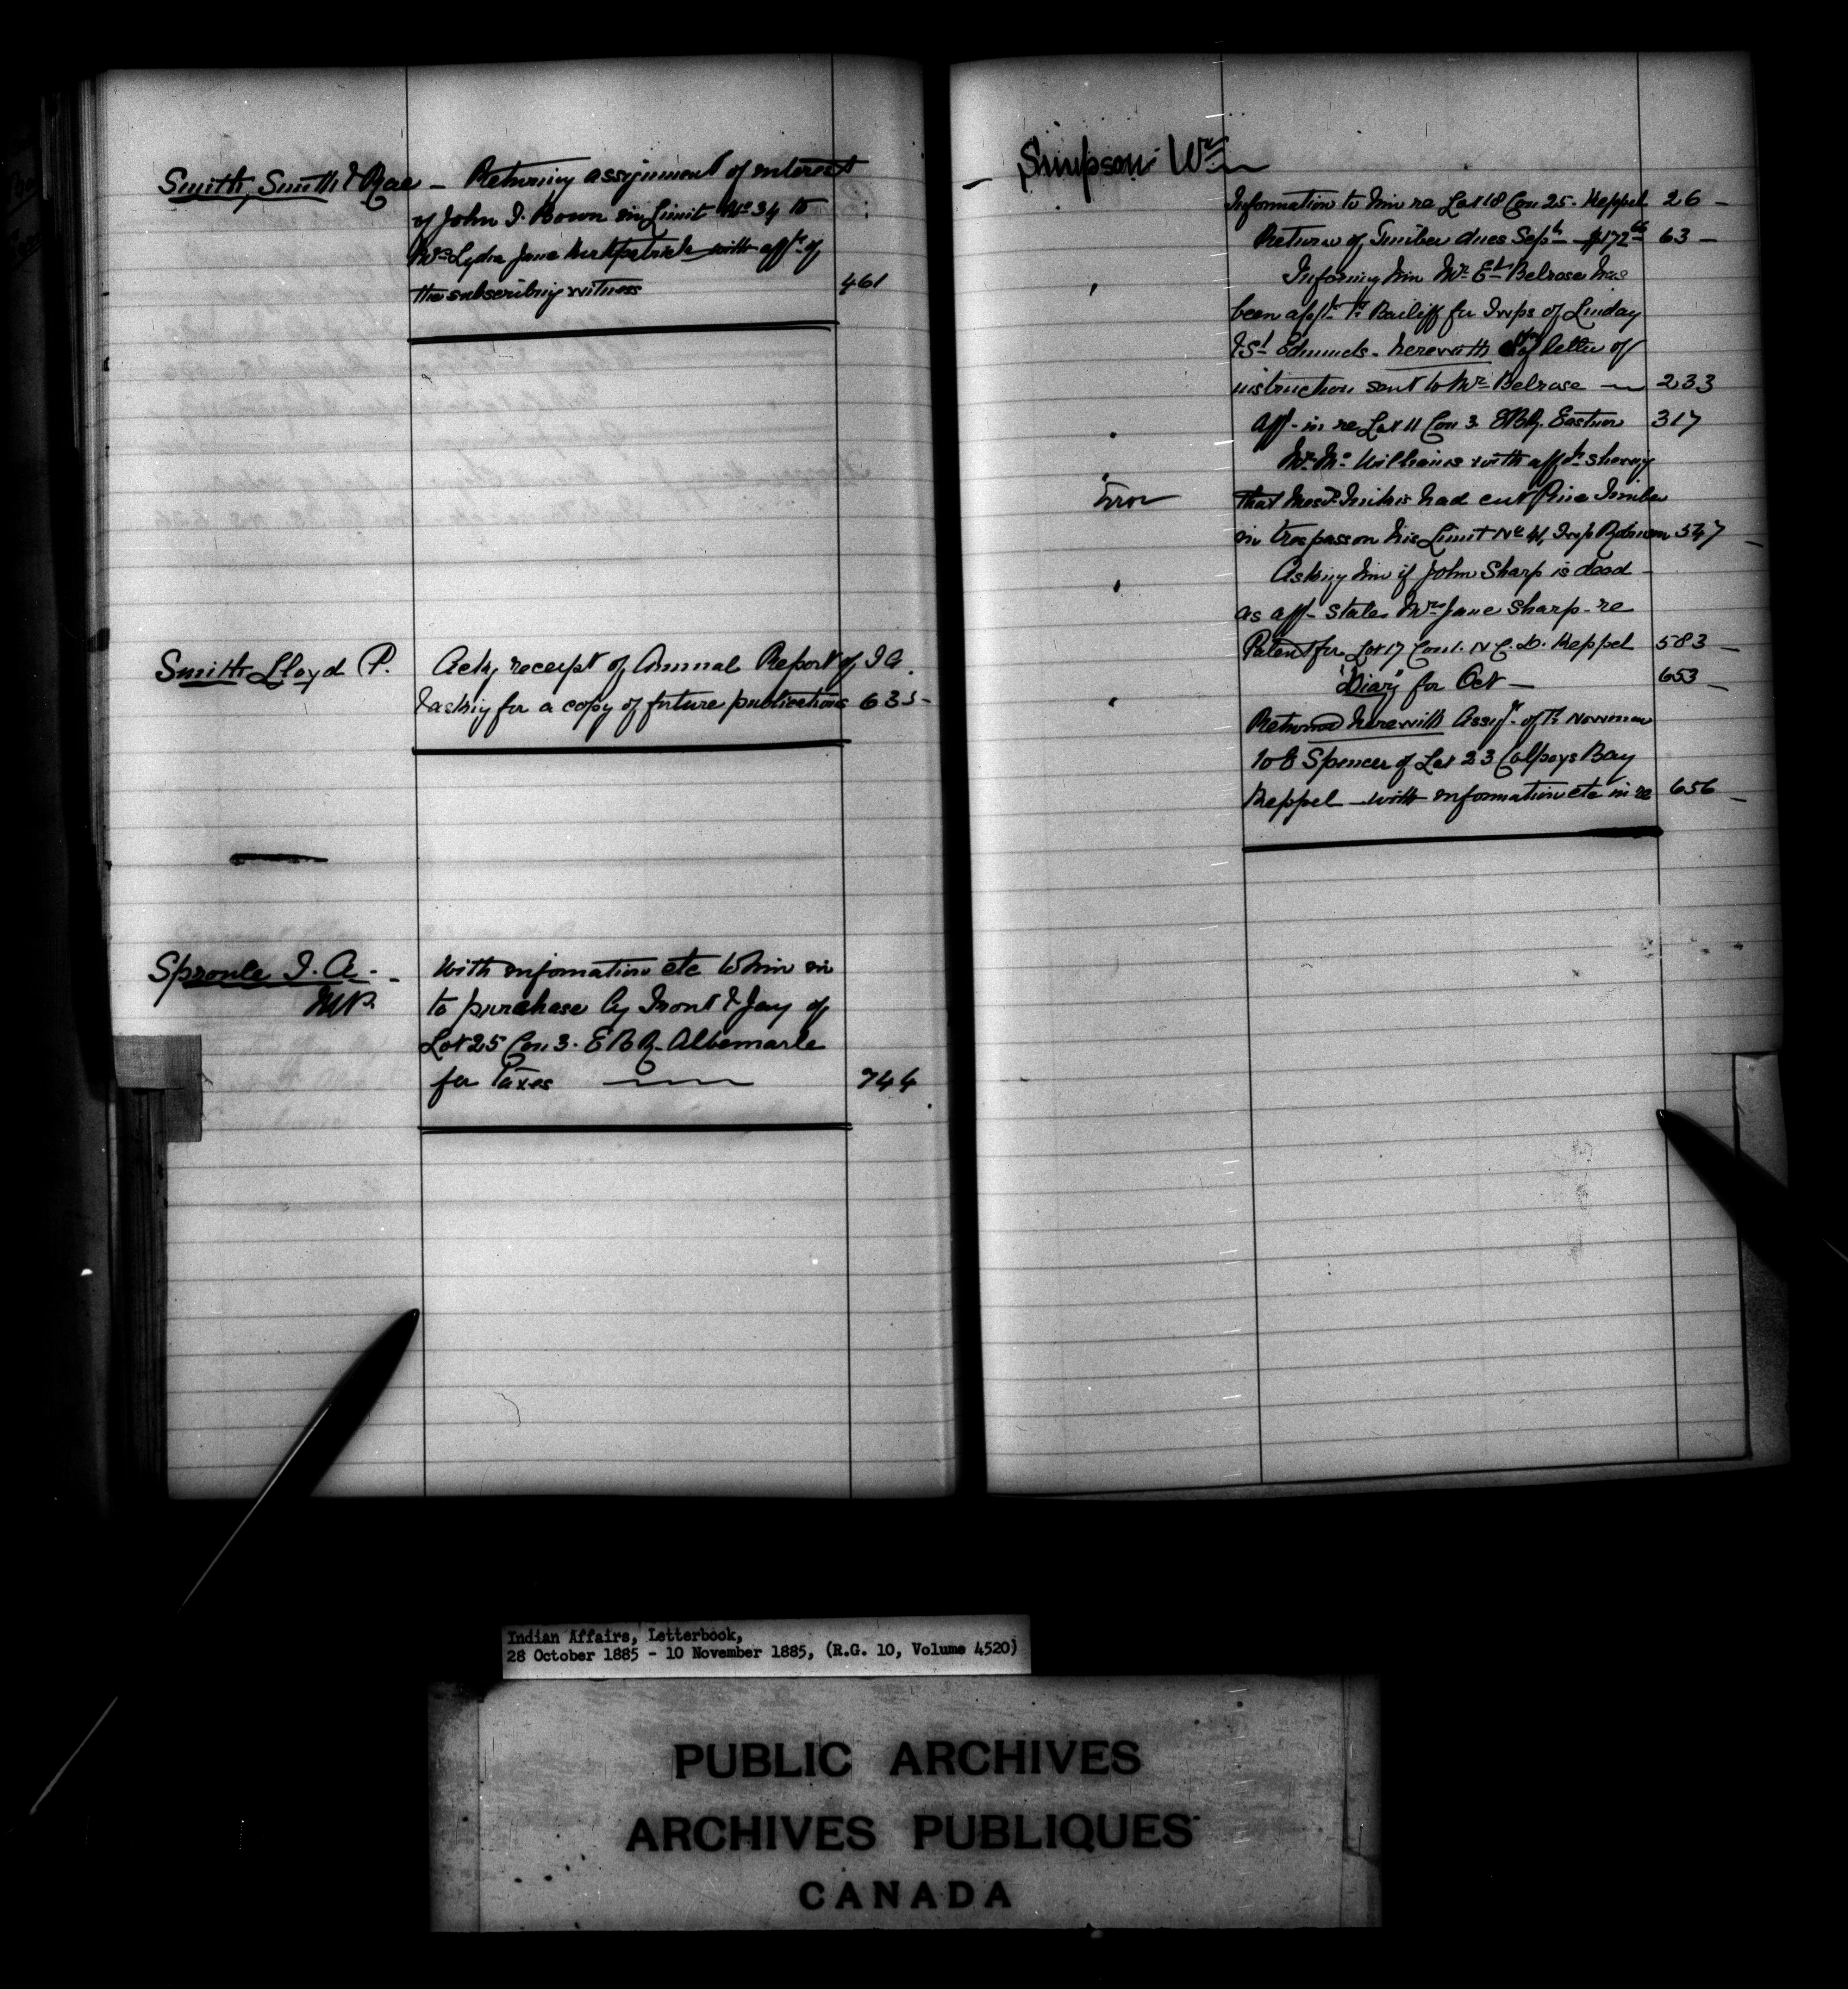 Smith, Smith & Rae - Returning assignment of interest
of John I. Bown in Limit No 34 to
Mrs Lydia Jane Kirkpatrick with afft of
the subscribing witness 461
Smith Lloyd P. Ackg receipt of Annual Report of I A.
& asking for a copy of future publications 635 -
Sproule I. A. - With information etc to him in
M.P. to purchase by Front & Jay of
Lot 25 Con 3. E B R. Albemarle
for Taxes 744
Simpson Wm
Information to him re Lot 18 Con 25. Keppel 26 -
Return of Timber dues Sept $172 63 -
Informing him Mr Ed Belrose has
been appt Bailiff for Twps of Linday
& St Edmunds - herewith copy letter of
instruction sent to Mr Belrose 233
Aff - in re Lot 11 Con 3 EBR. Eastnor 317
Mr Mc Williams with affdt showing
Error that Messrs had cut Pine Timber
in trespass on his Limit No 41, Twp Robinson 547 -
Asking him if John Sharp is dead -
as aff - states Mrs Jane Sharp - re
Patent for Lot 17 Con 1. N. C. D. Keppel 583 -
"Diary" for Oct - 653 -
Returned herewith Assgt of Norman
to E Spencer of Lot 23 Colpoys Bay
Keppel - with information etc in re 656 -
Indian Affairs, Letterbook,
28 October 1885 - 10 November 1885, (R.G. 10, Volume 4520)
PUBLIC ARCHIVES
ARCHIVES PUBLIQUES
CANADA